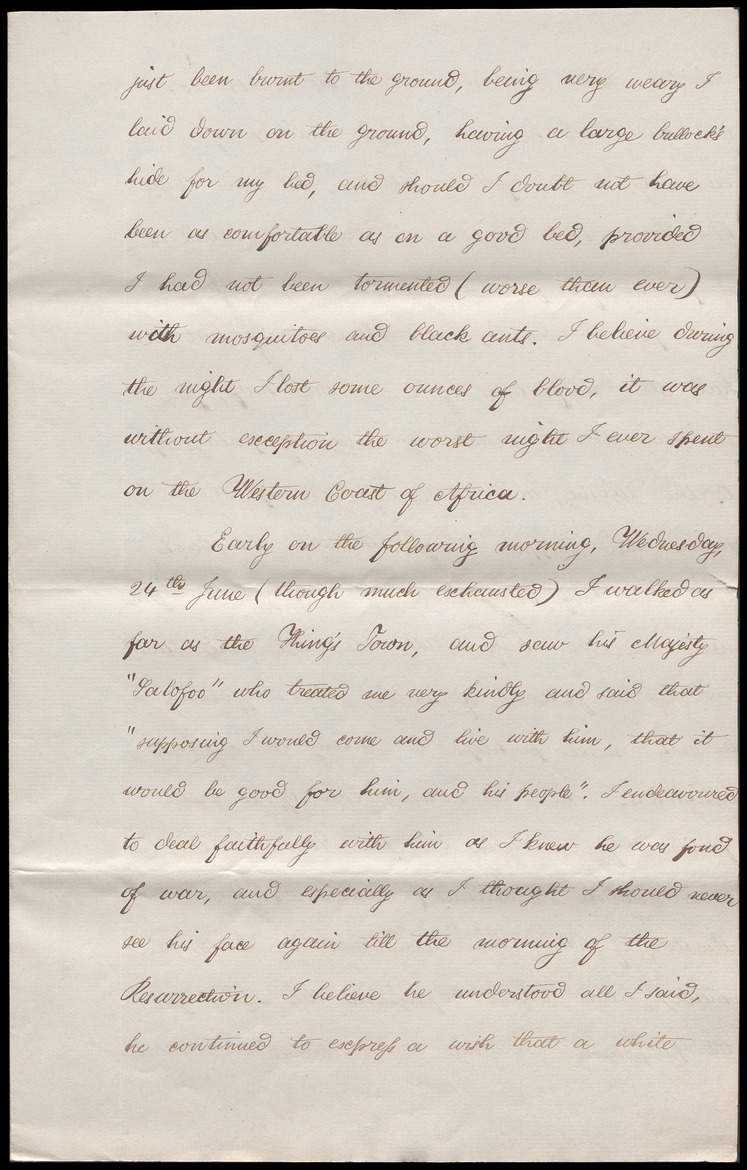 just been burnt to the ground, being very weary I
laid down on the ground, having a large bullock's
hide for my bed, and should I doubt not have
been as comfortable as on a good bed, provided
I had not been tormented (worse than ever)
with mosquitoes and black ants. I believe during
the night I lost some ounces of blood, it was
without exception the worst night I ever spent
on the Western Coast of Africa.
Early on the following morning, Wednesday,
24th June (though much exhausted) I walked as
far as the King's Town, and saw his Majesty
"Salofoo" who treated me very kindly and said that
"supposing I would come and live with him, that it
would be good for him, and his people". I endeavoured
to deal faithfully with him as I knew he was fond
of war, and especially as I thought I should never
see his face again till the morning of the
Resurrection. I believe he understood all I said,
he continued to express a wish that a white